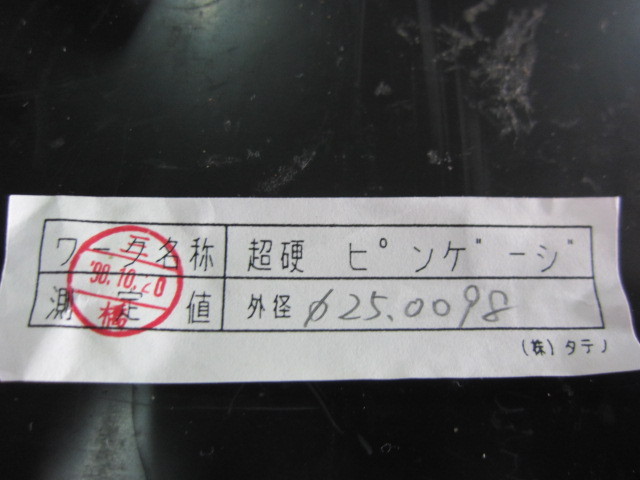 ワーク名称 超硬 ピンゲージ
測定値 外径 φ25.0098
'98.10.20
橋
(株)タテノ